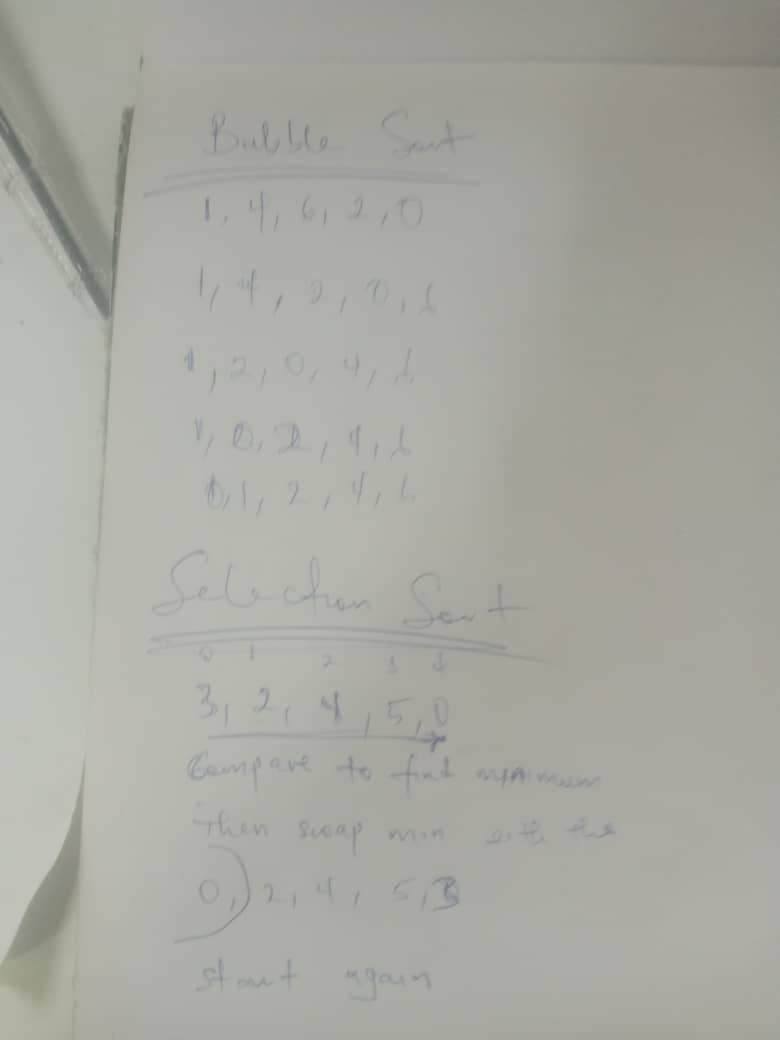 Bubble Sort
1, 4, 6, 2, 0
1, 4, 2, 0, 6
1, 2, 0, 4, 6
1, 0, 2, 4, 6
0, 1, 2, 4, 6
Selection Sort
0 1 2 3 4
3, 2, 4, 5, 0
Compare to find minimum
then swap min with the
0,) 2, 4, 5, 3
start again